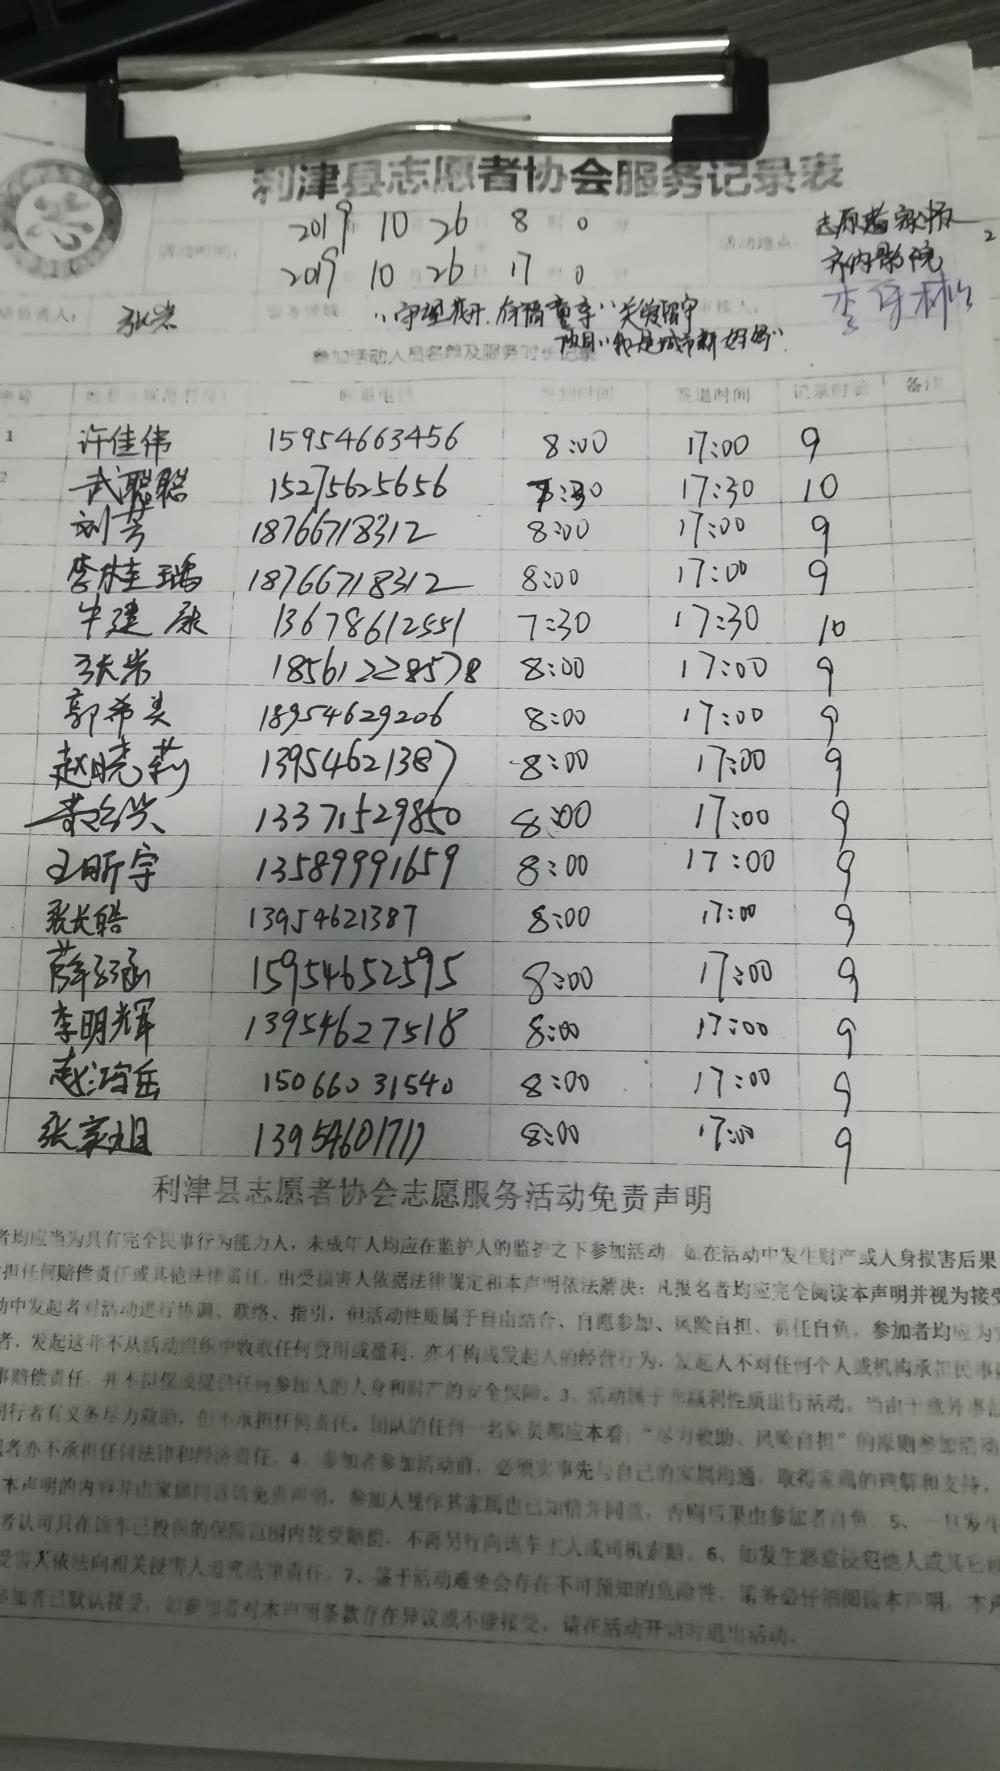 利津县志愿者协会服务记录表
活动时间: 2019 10 26 8 时 0 分 活动地点
2019 10 26 17 0 齐纳影院
张岩 "守望花开 关爱留守
项目"我是城市新妈妈"
参加活动人员名单及服务时长记录
序号 联系电话 签到时间 签退时间 记录时长 备注
1 许佳伟 15954663456 8:00 17:00 9
2 武聪聪 15275625656 7:30 17:30 10
刘芳 18766718312 8:00 17:00 9
李桂瑶 18766718312 8:00 17:00 9
牛建康 13678612551 7:30 17:30 10
张岩 18561228578 8:00 17:00 9
郭希美 18954629206 8:00 17:00 9
赵晓莉 13954621387 8:00 17:00 9
13371529850 8:00 17:00 9
王昕宇 13589991659 8:00 17:00 9
张长皓 13954621387 8:00 17:00 9
薛涵 15954652595 8:00 17:00 9
李明辉 13954627518 8:00 17:00 9
赵岳 15066031540 8:00 17:00 9
张家旭 13954601717 8:00 17:00 9
利津县志愿者协会志愿服务活动免责声明
者均应当为具有完全民事行为能力人，未成年人均应在监护人的监护之下参加活动。如在活动中发生财产或人身损害后果
担任何赔偿责任或其他法律责任，由受损害人依据法律规定和本声明依法解决；凡报名者均应完全阅读本声明并视为接受
动中发起者对活动进行协调、联络、指引，但活动性质属于自由结合、自愿参加、风险自担、责任自负，参加者均应为
者，发起这并不从活动组织中收取任何费用或盈利，亦不构成发起人的经营行为，发起人不对任何个人或机构承担民事
事赔偿责任，并不担保或提供任何参加人的人身和财产的安全保障。3、活动属于非赢利性质出行活动，当由于意外事
同行者有义务尽力救助，但不承担任何责任。团队的任何一名队员都应本着："尽力救助、风险自担"的原则参加活动
者亦不承担任何法律和经济责任。4、参加者参加活动前，必须实事先与自己的家属沟通，取得家属的理解和支持，
本声明的内容并由家属同意该免责声明，参加人视作其家属也已知情并同意，否则后果由参加者自负。5、一旦发生
者认可只在该车已投保的保险范围内接受赔偿，不再另行向该车主人或司机索赔。6、如发生恶意侵犯他人或其它
受害人依法向相关侵害人追究法律责任。7、鉴于活动难免会存在不可预知的危险性，请务必仔细阅读本声明，本声
参加者已默认接受，如参加者对本声明条款存在异议或不能接受，请在活动开始时退出活动。